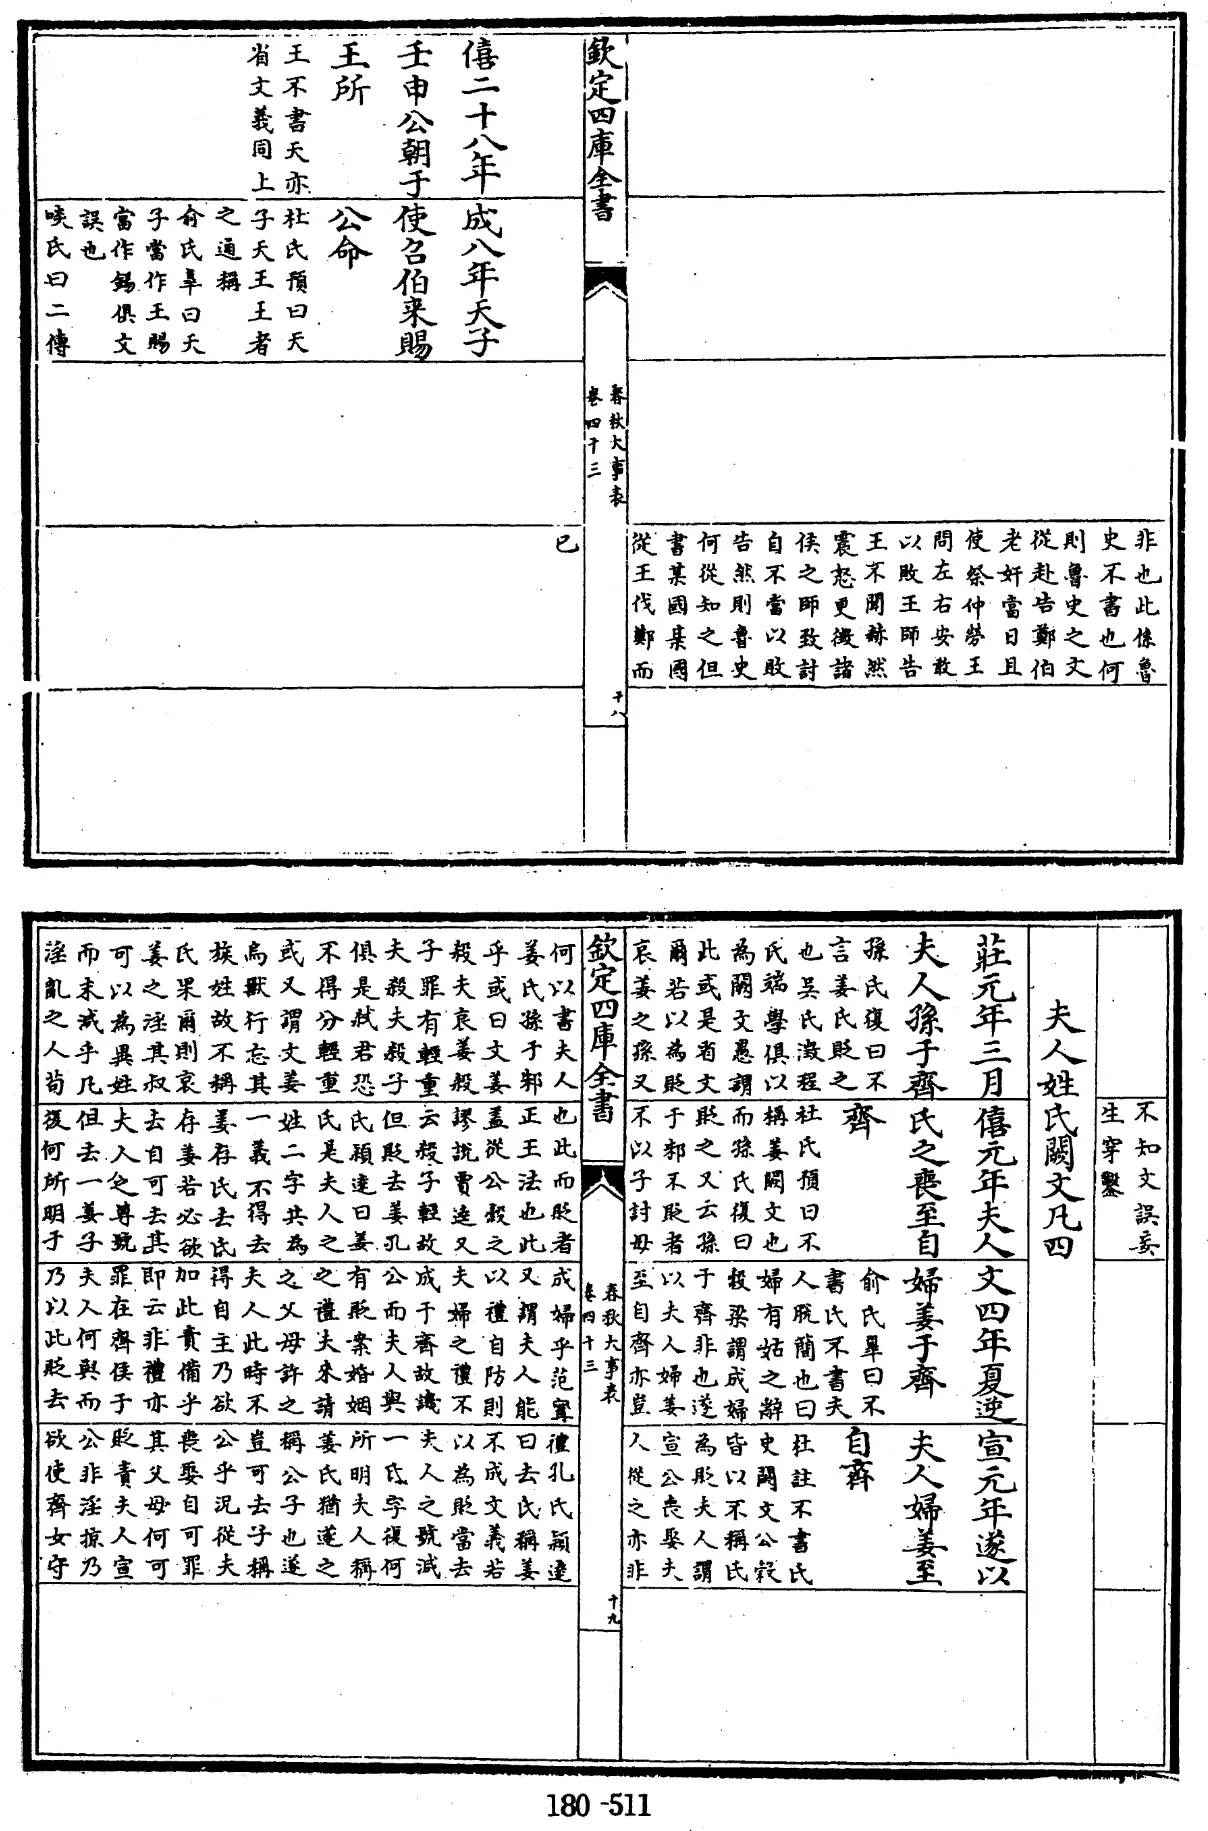 非也此係魯
史不書也何
則魯史之文
從赴告鄭伯
老奸當日且
使祭仲勞王
問左右安敢
以敗王師告
王不聞赫然
震怒更徵諸
侯之師致討
自不當以敗
告然則魯史
何從知之但
書某國某國
從王伐鄭而
欽定四庫全書
春秋大事表
卷四十三
十八
已
僖二十八年
壬申公朝于
王所
王不書天亦
省文義同上
成八年天子
使召伯来賜
公命
杜氏預曰天
子天王王者
之通稱
俞氏臯曰天
子當作王賜
當作錫俱文
誤也
啖氏曰二傳
不知文誤妄
生穿鑿
夫人姓氏闕文凡四
莊元年三月
夫人孫于齊
孫氏復曰不
言姜氏貶之
也吳氏澂程
氏端學俱以
為闕文愚謂
此或是省文
爾若以為貶
哀姜之孫又
僖元年夫人
氏之喪至自
齊
杜氏預曰不
稱姜闕文也
而孫氏復曰
貶之又云孫
于邾不貶者
不以子討母
文四年夏逆
婦姜于齊
俞氏臯曰不
書氏不書夫
人脫簡也曰
婦有姑之辭
穀梁謂成婦
于齊非也遂
以夫人婦姜
至自齊亦豈
宣元年遂以
夫人婦姜至
自齊
杜註不書氏
史闕文公穀
皆以不稱氏
為貶夫人謂
宣公喪娶夫
人從之亦非
欽定四庫全書
春秋大事表
卷四十三
十九
何以書夫人
姜氏孫于邾
乎或曰文姜
殺夫哀姜殺
子罪有輕重
夫殺夫殺子
俱是弒君恐
不得分輕重
或又謂文姜
鳥獸行忘其
族姓故不稱
氏果爾則哀
姜之淫其叔
可以為異姓
而末減乎凡
淫亂之人苟
也此而貶者
正王法也此
蓋從公穀之
謬說賈逵又
云殺子輕故
但貶去姜孔
氏穎達曰姜
氏是夫人之
姓二字共為
一義不得去
姜存氏去氏
存姜若必欲
去自可去其
夫人之尊號
但去一姜字
復何所明于
成婦乎范甯
又謂夫人能
以禮自防則
夫婦之禮不
成于齊故譏
公而夫人與
有貶案婚姻
之禮夫來請
之父母許之
夫人此時不
得自主乃欲
加此責備乎
即云非禮亦
罪在齊侯于
夫人何與而
乃以此貶去
禮孔氏穎達
曰去氏稱姜
不成文義若
以為貶當去
夫人之號減
一氏字復何
所明夫人稱
姜氏猶遂之
稱公子也遂
豈可去子稱
公乎況從夫
喪娶自可罪
其父母何可
貶責夫人宣
公非淫掠乃
欲使齊女守
180-511